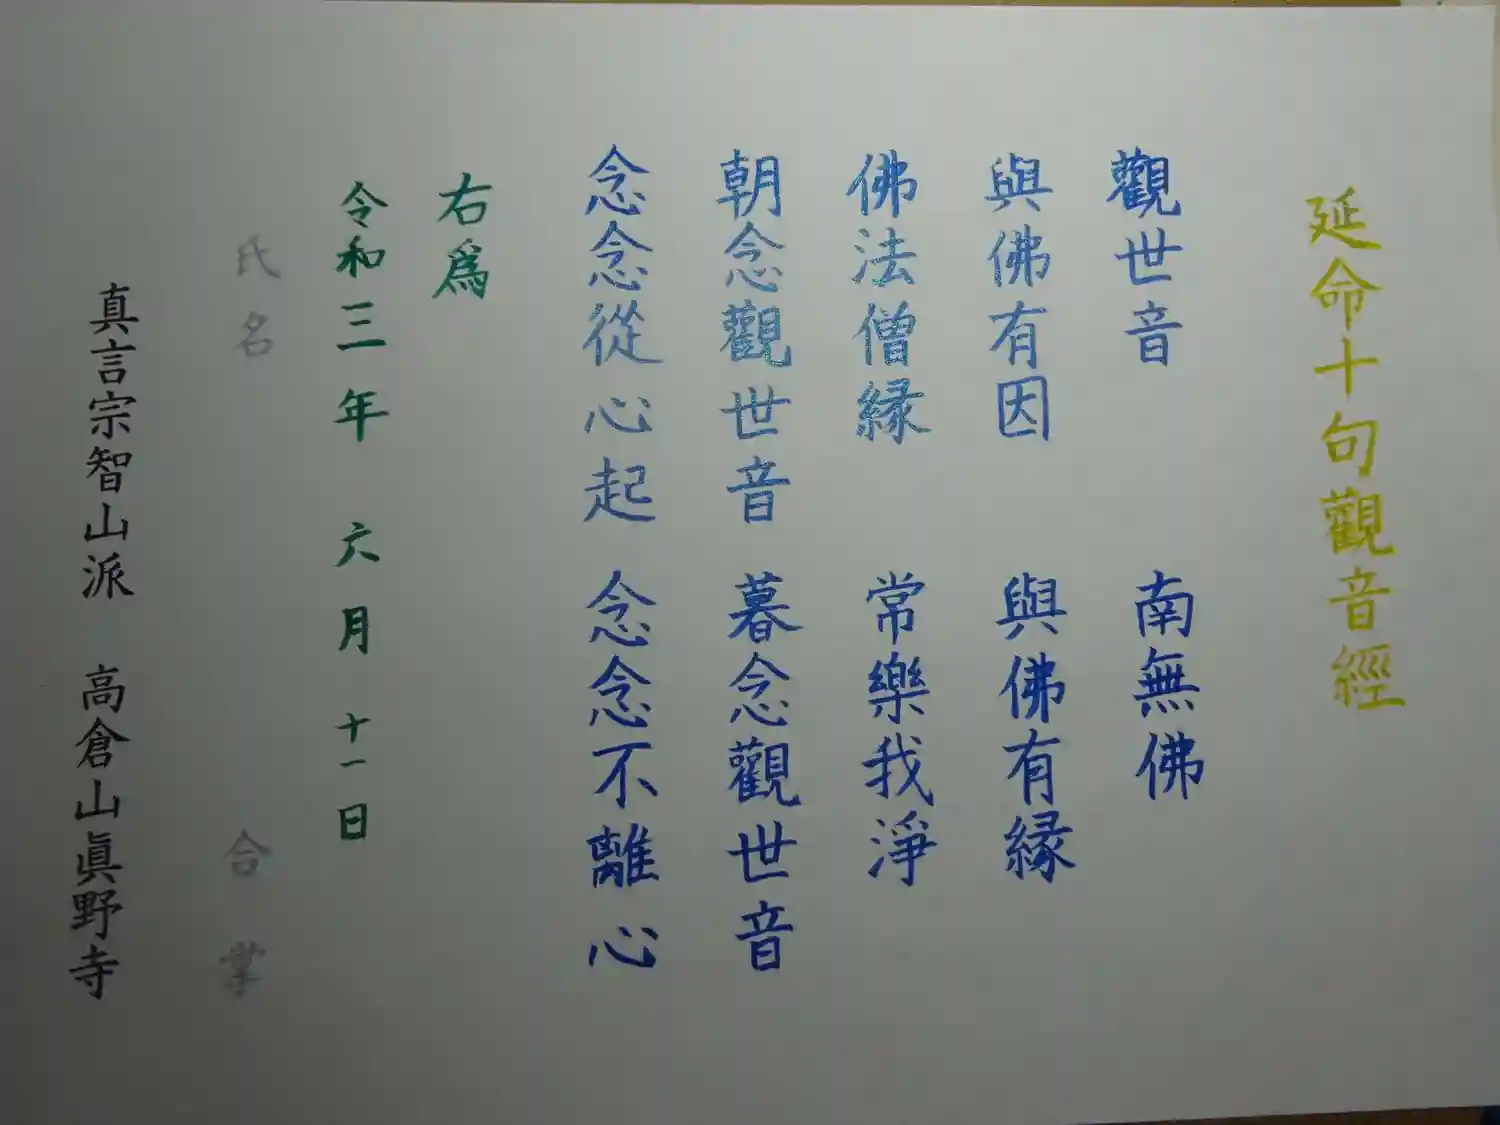 延命十句觀音經
觀世音 南無佛
與佛有因 與佛有縁
佛法僧縁 常樂我淨
朝念觀世音 暮念觀世音
念念從心起 念念不離心
右爲
令和三年 六月十一日
氏名 合掌
真言宗智山派 高倉山眞野寺